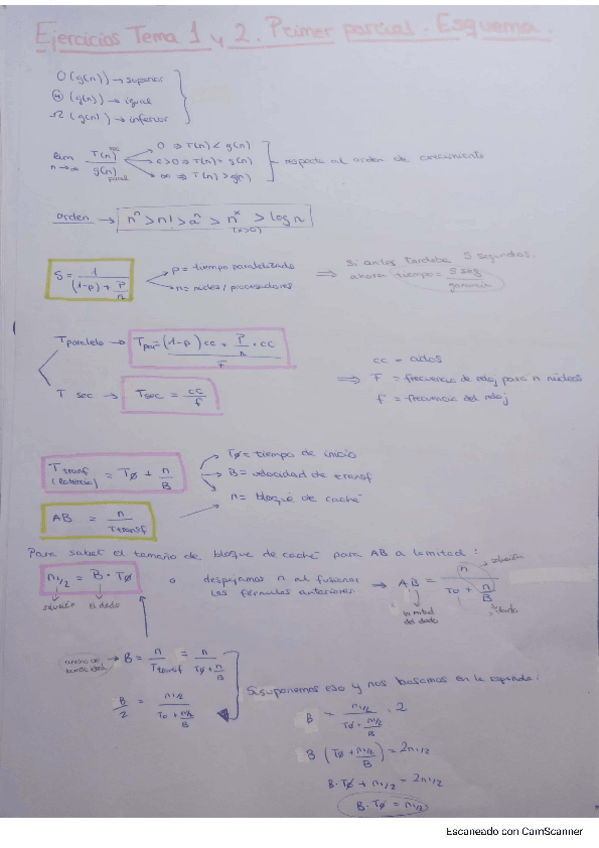 Ejercicios Tema 1 y 2. Primer parcial. Esquema.
O(g(n)) → superior
Θ(g(n)) → igual
Ω(g(n)) → inferior
lim n→∞ T(n) sec / g(n) paral
0 ⇒ T(n) < g(n)
c>0 ⇒ T(n) = g(n)
∞ ⇒ T(n) > g(n)
respecto al orden de crecimiento
orden → n^n > n! > a^n > n^x > log n
(x>0)
S = 1 / ((1-p) + P/n)
p = tiempo paralelizado
n = núcleos / procesadores
⇒ Si antes tardaba S segundos,
ahora tiempo = S seg / ganancia
T paralelo → Tpar = ((1-p)cc + P/n · cc) / F
T sec → Tsec = cc / f
cc = ciclos
⇒ F = frecuencia de reloj para n núcleos
f = frecuencia del reloj
T transf (latencia) = TØ + n/B
TØ = tiempo de inicio
B = velocidad de transf
n = bloque de caché
AB = n / Ttransf
Para saber el tamaño de bloque de caché para AB a la mitad:
n1/2 = B · TØ o despejamos n al fusionar
las fórmulas anteriores → AB = n / (T0 + n/B)
solución
el dado
solución
la mitad del dado
dado
ancho de banda → B = n / Ttransf = n / (TØ + n/B)
B/2 = n1/2 / (T0 + n1/2 / B)
Si suponemos eso y nos basamos en la segunda:
B = n1/2 / (TØ + n1/2 / B) · 2
B (TØ + n1/2 / B) = 2n1/2
B·TØ + n1/2 = 2n1/2
B·TØ = n1/2
Escaneado con CamScanner